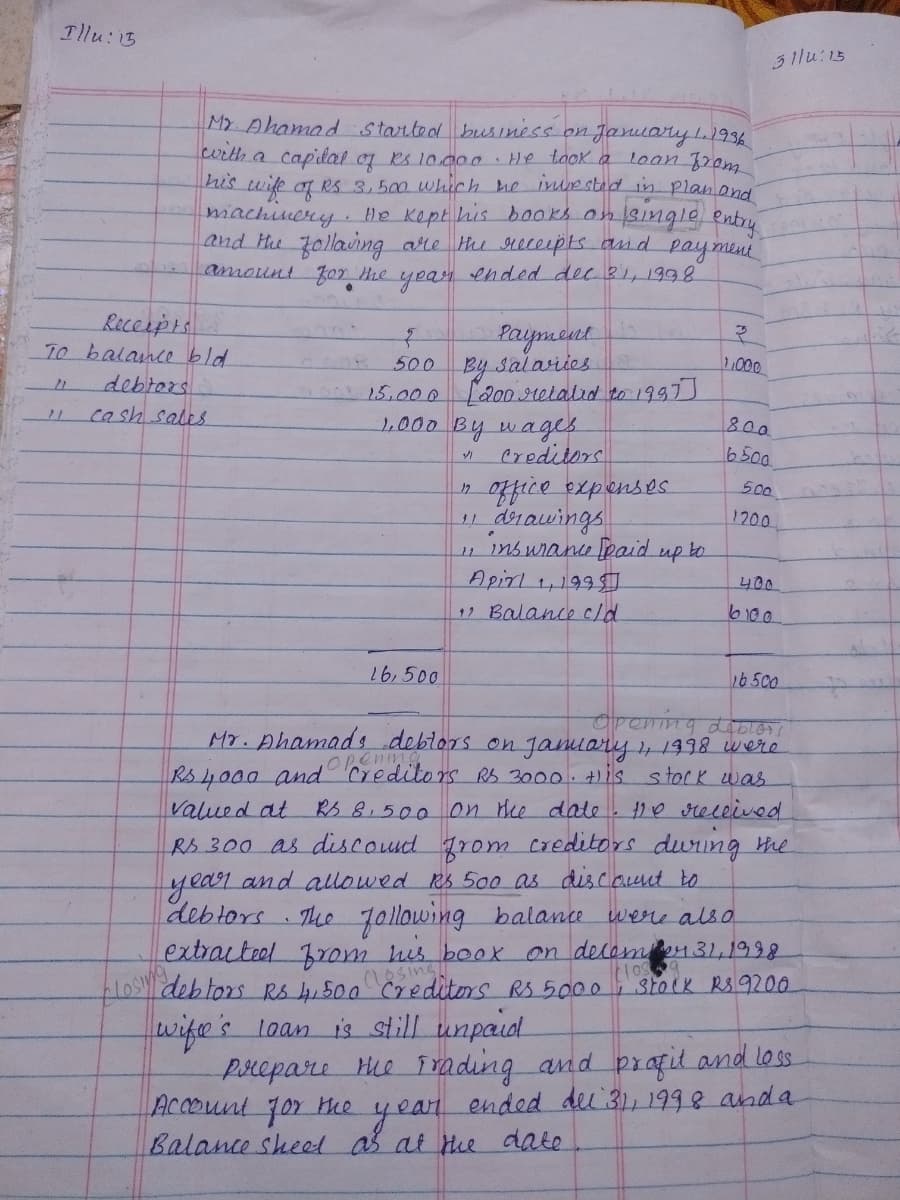 Illu: 15
3 llu: 15
Mr Ahamad started business on January 1, 1936
with a capital of Rs 10,000. He took a loan from
his wife of Rs 3,500 which he invested in plan and
machinery. He kept his books on single entry
and the follawing are the receipts and payment
amount for the year ended dec 31, 1998
Receipts ₹ Payment ₹
To balance b/d 500 By salaries 1,000
" debtors 15,000 [200 related to 1997]
" cash sales 1,000 By wages 800
" creditors 6500
" office expenses 500
" drawings 1200
" insurance [paid up to
Apirl 1, 1999] 400
" Balance c/d 6100
16,500 16500
opening debtors
Mr. Ahamads debtors on January 1, 1998 were
opening
Rs 4,000 and Creditors Rs 3000. His stock was
valued at Rs 8,500 on the date. He received
Rs 300 as discount from creditors during the
year and allowed Rs 500 as discount to
debtors. The following balance were also
extracted from his book on december 31, 1998
closing closing closing
debtors Rs 4,500 Creditors Rs 5000, stock Rs 9200
wife's loan is still unpaid
Prepare the Trading and profit and loss
Account for the year ended dec 31, 1998 and a
Balance sheet as at the date.